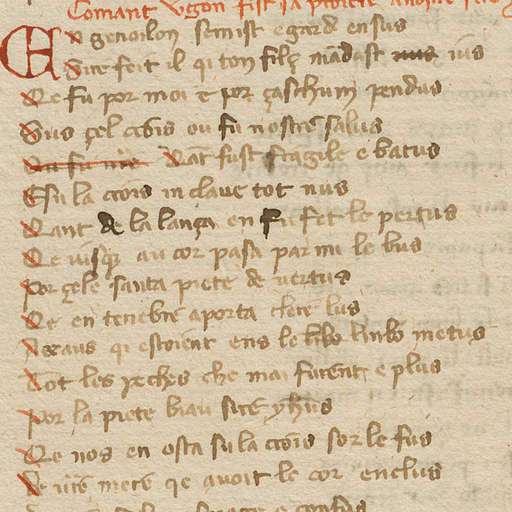 Comant Ugon fist sa proiere
En genoilon se mist e garde en sus
Sire feit il qi ton filz mādast ius
Qe fu por moi e por çaschum pendus
Sus çel crois ou fu nostre salus
Tāt fust fragile e batus
E su la crois inclave tot nus
Tant de la lança en fu fet le pertus
Qe iusqe au cor pasa parmi le bus
Por çele santa piete de vertus
Qe en tenebre aporta clere lus
A ceaus qi estoient ens le linbo metus
Tot les peches che mai furent e plus
Por la piete biau sire yhus
Qe nos en osta su la crois sor le fus
De ūre mere qe avoit le cor enclus